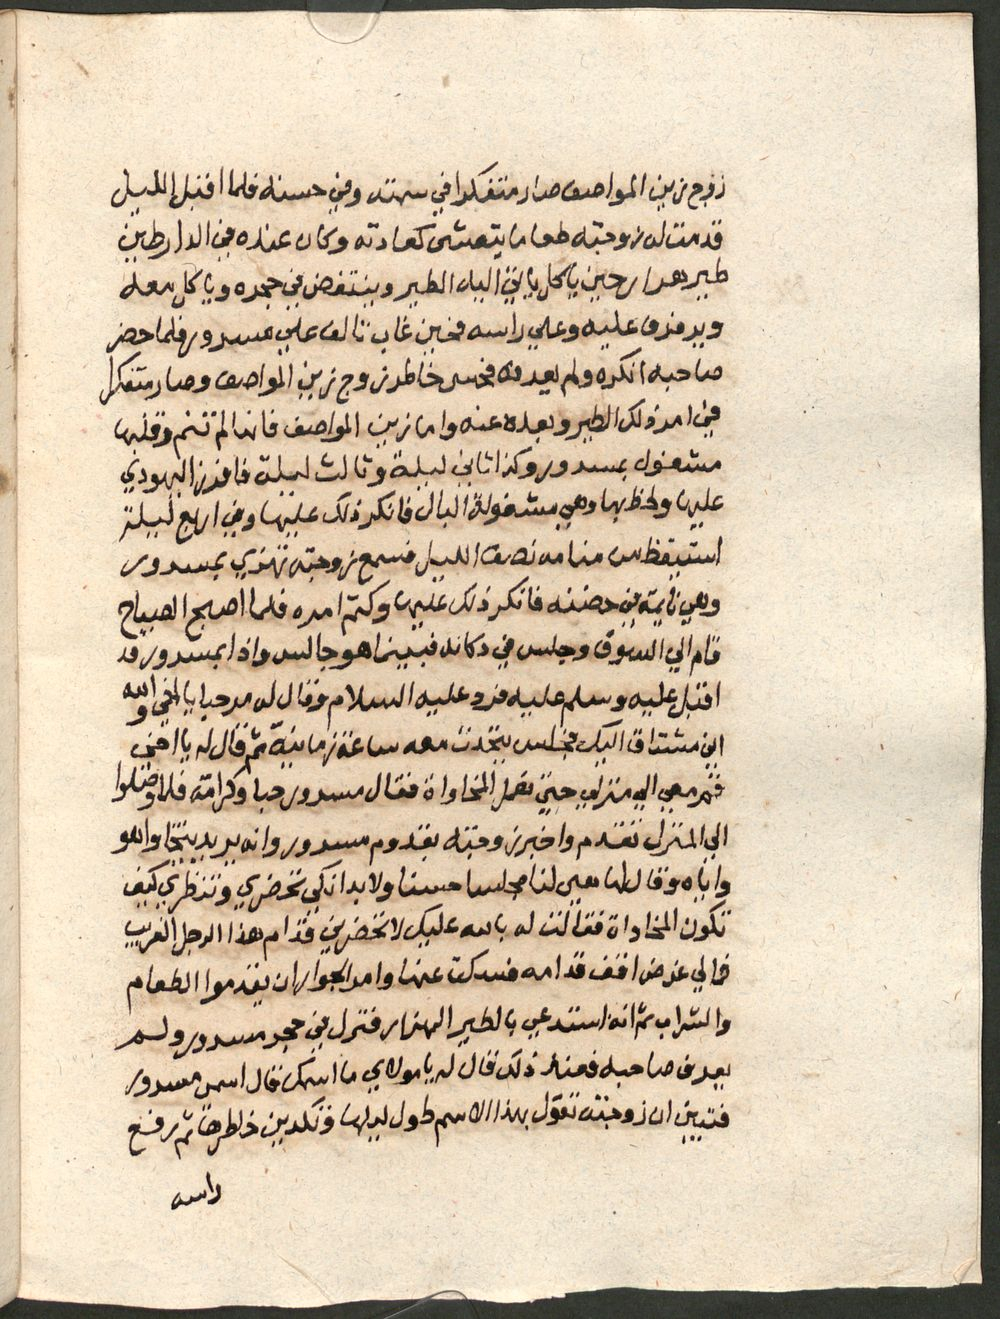 زوج زين المواصف صار متفكرا في سهته وفي حسنه فلما اقبل الليل
قدمت له زوجته طعاما يتعشى كعادته وكان عنده في الدار طين
طير هدار حين ياكل ياتي اليه الطير وينتفض في حجره وياكل معه
ويرفرف عليه وعلي راسه فحين غاب تالف علي مسرور فلما حضر
صاحبه انكره ولم يعرفه فخس خاطر زوج زين المواصف وصار متفكرا
في امر ذلك الطير وبعده عنه واما زين المواصف فانها لم تنم وقلبها
مشغول بمسرور وكذا ثاني ليلة وثالث ليلة فافرز اليهودي
عليها ولحظ بها وهي مشغولة البال فانكر ذلك عليها وفي اربع ليلة
استيقظ من منامه نصف الليل فسمع زوجته تهزي بمسرور
وهي نايمة في حضنه فانكر ذلك عليها وكتم امره فلما اصبح الصباح
قام الي السوق وجلس في دكانه فبينما هو جالس واذا بمسرور قد
اقبل عليه وسلم عليه فرد عليه السلام وقال له مرحبا يا اخي والله
اني مشتاق اليك فجلس يتحدث معه ساعة زمانية ثم قال له يا اخي
قم معي الي منزلي حتي نعمل المخاواة فقال مسرور حبا وكرامة فلما وصلوا
الي المنزل تقدم واخبر زوجته بقدوم مسرور وانه يريد يتخاوا هو
واياه وقال لها هيي لنا مجلسا حسنا ولا بد انكي تحضري وتنظري كيف
تكون المخاواة فقالت له بالله عليك لا تحضرني قدام هذا الرجل الغريب
فما لي غرض اقف قدامه فسكت عنها وامر الجوار ان يقدموا الطعام
والشراب ثم انه استدعي بالطير الهزار فنزل في حجر مسرور ولم
يعرف صاحبه فعند ذلك قال له يا مولاي ما اسمك قال اسمي مسرور
فتبين ان زوجته تقول بهذا الاسم طول ليلها فتكدر خاطره ثم رفع
راسه